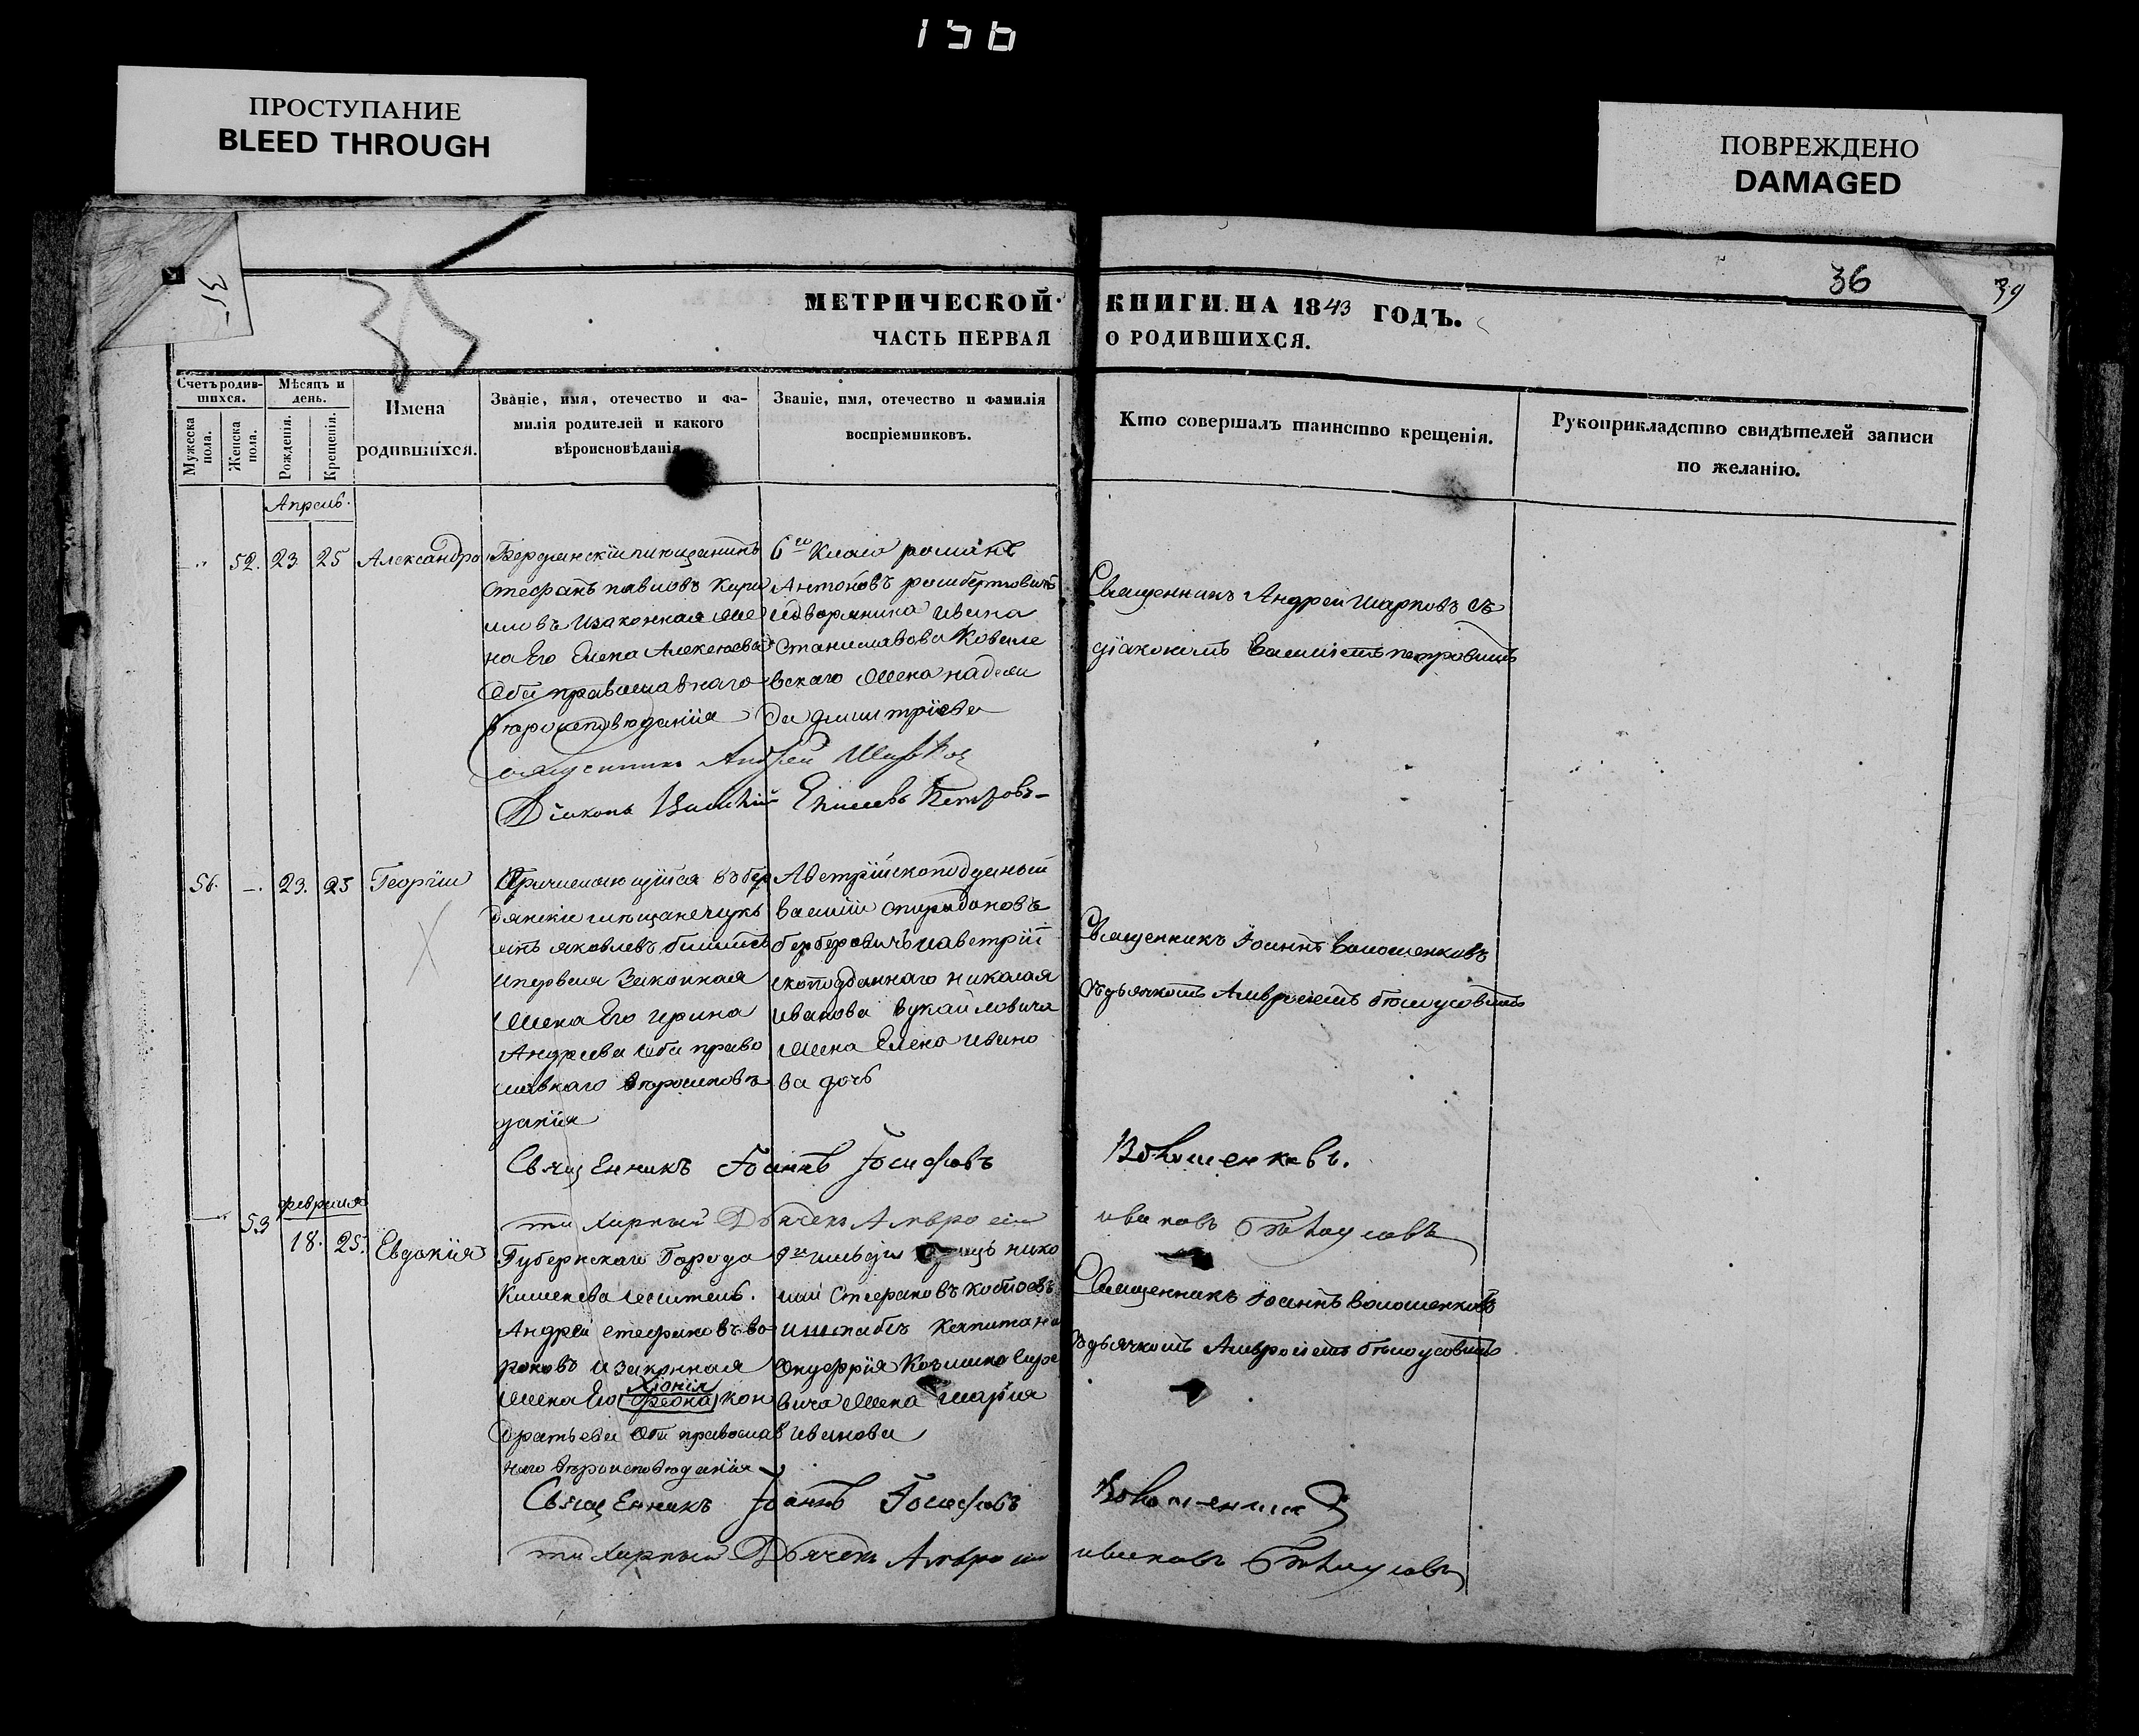 156
ПРОСТУПАНИЕ
BLEED THROUGH
ПОВРЕЖДЕНО
DAMAGED
35
36
39
МЕТРИЧЕСКОЙ КНИГИ НА 1843 ГОДЪ.
ЧАСТЬ ПЕРВАЯ О РОДИВШИХСЯ.
Счетъ родив-
шихся.
Мужеска пола.
Женска пола.
Мѣсяцъ и
день.
Рожденія.
Крещенія.
Имена
родившихся.
Званіе, имя, отечество и фа-
милія родителей и какого
вѣроисповѣданія
Званіе, имя, отечество и фамилія
воспріемниковъ.
Кто совершалъ таинство крещенія.
Рукоприкладство свидѣтелей записи
по желанію.
Апрель
52. 23. 25 Александра
Стефанъ павловъ Кири
ловъ изаконная Же
на Его Елена Алексеева
Оба православнаго
вероисповеданія
6го Класа романъ
Антоновъ
идворянина ивана
Станиславова Ковале
вскаго Жена надеж
да дмитріева
Священникъ Андреи Шарковъ съ
діакономъ Василіемъ петровымъ
Священникъ Андрей
Діаконъ Василій Петровъ
56. -. 23. 25 Георгіи
Причисляющійся въ бер
дянскіе мещане
яковлевъ
ипервая Законная
Жена Его ирина
Андреева оба право
славнаго вероисповѣ
данія
Австрійскоподданый
василіи спиридоновъ
берберовичъ иавстрій
скоподданнаго николая
иванова вукайловича
Жена Елена ивано
ва дочь
Священникъ Іоаннъ Волошенковъ
съдьячкомъ Амвросіемъ белоусовымъ
Священникъ Іоаннъ Іосифовъ Волошенковъ.
Дьячекъ Амвросіи ивановъ Бѣлоусовъ
53 февраля
18. 25. Евдокія
Губернскаго Города
Кишенева житель.
Андрей стефановъ во
роновъ изаконная
Жена Его Феона кон
Хіонія
дратьева Оба православ
наго вѣроисповѣданія
нико
лай Стефановъ
иштабсъ Капитана
Онуфрія
вича Жена марія
иванова
Священникъ Іоаннъ Волошенковъ
съдьячкомъ Амвросіемъ бѣлоусовымъ
Священникъ Іоаннъ Іосифовъ Волошенковъ
Дьячекъ Амвросіи ивановъ Бѣлоусовъ